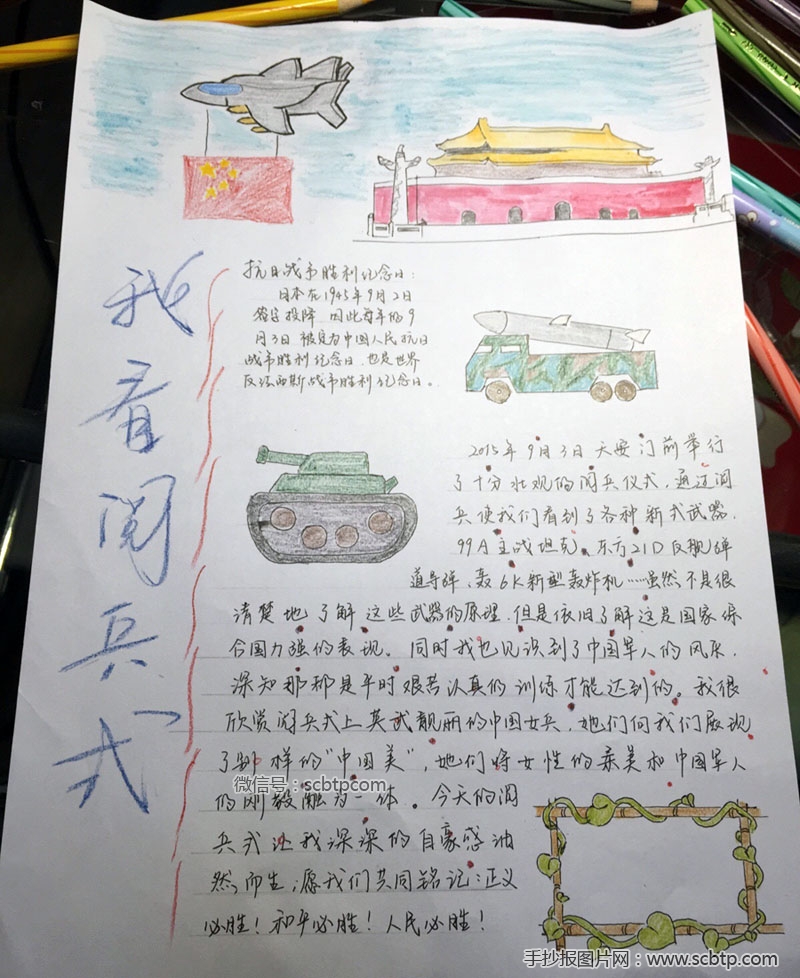 我看阅兵式
抗日战争胜利纪念日:
日本在1945年9月2日
签字投降,因此每年的9
月3日被定为中国人民抗日
战争胜利纪念日,也是世界
反法西斯战争胜利纪念日。
2015年9月3日天安门前举行
了十分壮观的阅兵仪式,通过阅
兵使我们看到了各种新式武器.
99A主战坦克、东方21D反舰弹
道导弹、轰6K新型轰炸机……虽然不是很
清楚地了解这些武器的原理,但是依旧了解这是国家综
合国力强的表现。同时我也见识到了中国军人的风采,
深知那都是平时艰苦认真的训练才能达到的。我很
欣赏阅兵式上英武靓丽的中国女兵,她们向我们展现
了别样的“中国美”,她们将女性的柔美和中国军人
的刚毅融为一体。今天的阅
兵式让我深深的自豪感油
然而生,愿我们共同铭记:正义
必胜!和平必胜!人民必胜!
微信号:scbtpcom
手抄报图片网:www.scbtp.com